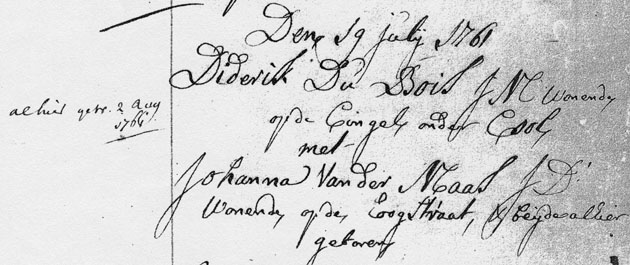 Den 19 July 1761
Diderik Du Bois J M wonende
op de Cingel onder Cool
met
Johanna Van der Maas J D
wonende op de Hoogstraat, beijde alhier
geboren
alhier getr. 2 Aug
1761